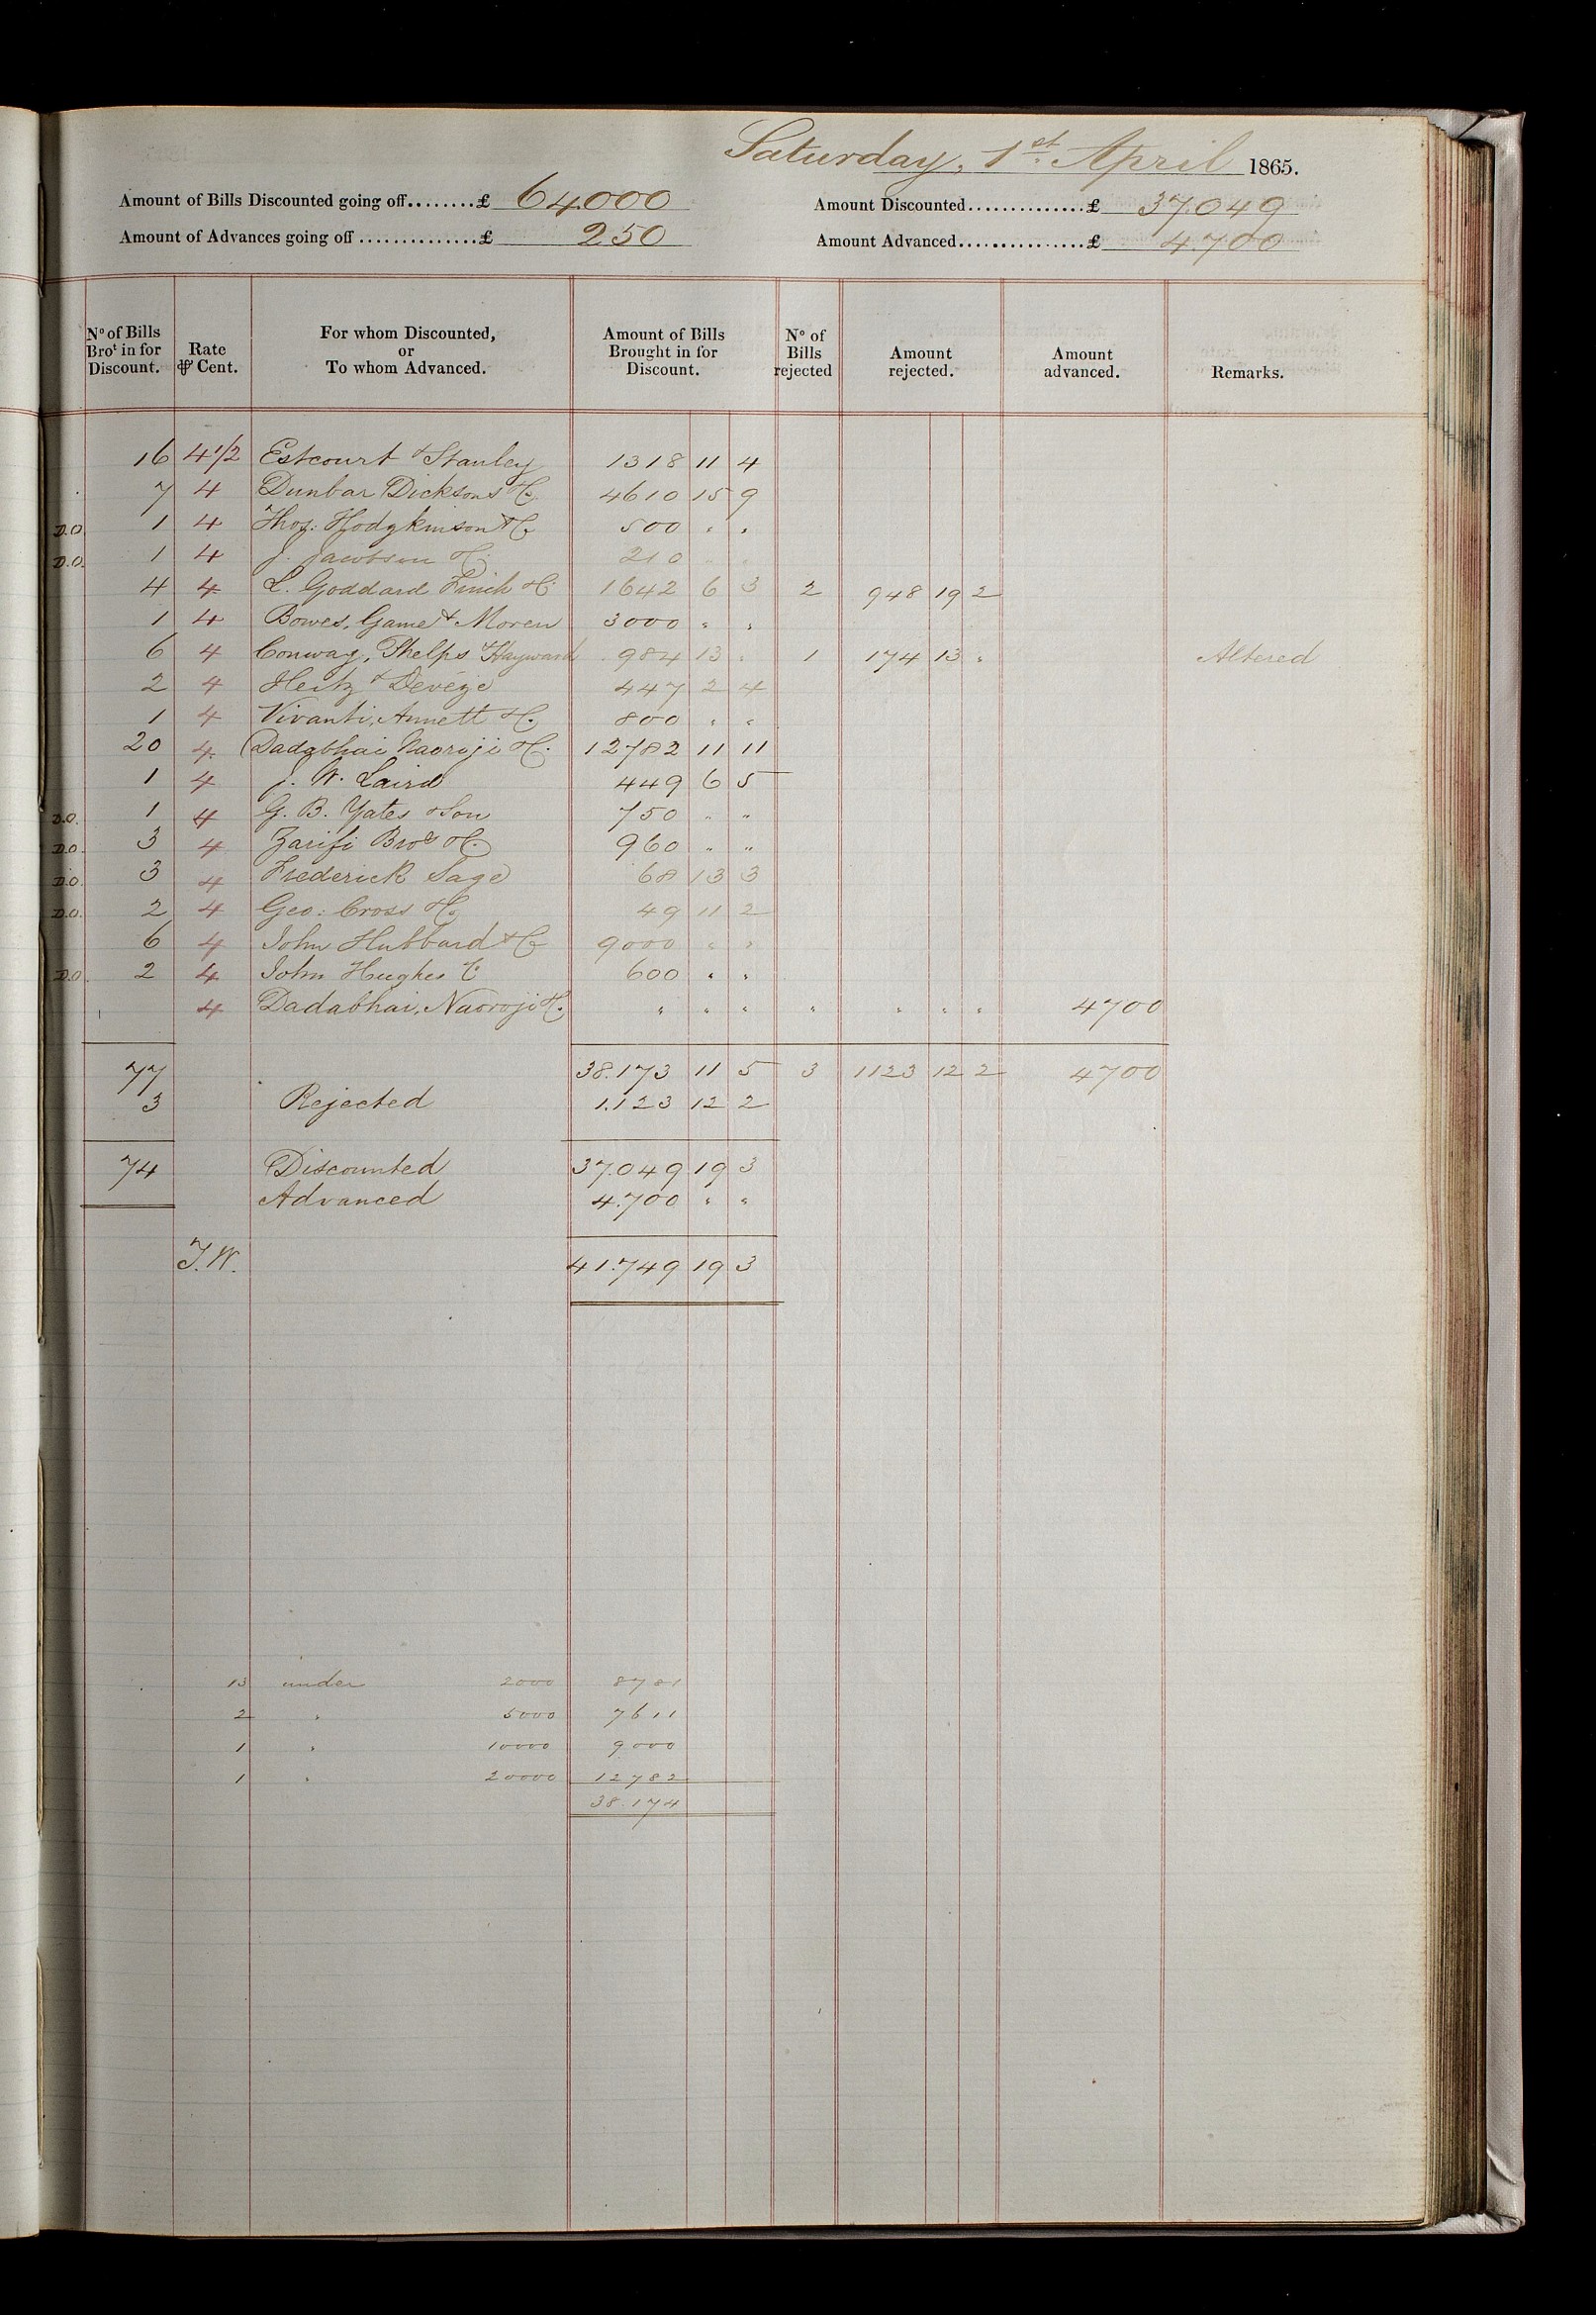 Saturday, 1st April 1865.
Amount of Bills Discounted going off........£ 64.000 Amount Discounted..............£ 37.049
Amount of Advances going off..............£ 250 Amount Advanced..............£ 4.700
No of Bills Brot in for Discount. Rate ⅌ Cent. For whom Discounted, or To whom Advanced. Amount of Bills Brought in for Discount. No of Bills rejected Amount rejected. Amount advanced. Remarks.
16 4 1/2 Estcourt & Stanley 1318 11 4
7 4 Dunbar Dicksons & Co 4610 15 9
D.O. 1 4 Thos: Hodgkinson & Co 500 " "
D.O. 1 4 J. Jacobson & Co 210 " "
4 4 L. Goddard Finch & Co 1642 6 3 2 948 19 2
1 4 Bowes, Game & Moren 3000 " "
6 4 Conway, Phelps & Hayward 984 13 " 1 174 13 " Altered
2 4 Heitz & Devéze 447 2 4
1 4 Vivanti, Annett & Co 800 " "
20 4 Dadabhai Naoroji & Co 12782 11 11
1 4 J. W. Laird 449 6 5
D.O. 1 4 G. B. Yates & Son 750 " "
D.O. 3 4 Zarifi Bros & Co 960 " "
D.O. 3 4 Frederick Sage 68 13 3
D.O. 2 4 Geo: Cross & Co 49 11 2
6 4 John Hubbard & Co 9000 " "
D.O. 2 4 John Hughes & Co 600 " "
4 Dadabhai, Naoroji & Co " " " " " " " 4700
77 38.173 11 5 3 1123 12 2 4700
3 Rejected 1.123 12 2
74 Discounted 37.049 19 3
Advanced 4.700 " "
T.W. 41.749 19 3
13 under 2000 8781
2 " 5000 7611
1 " 10000 9000
1 " 20000 12782
38.174